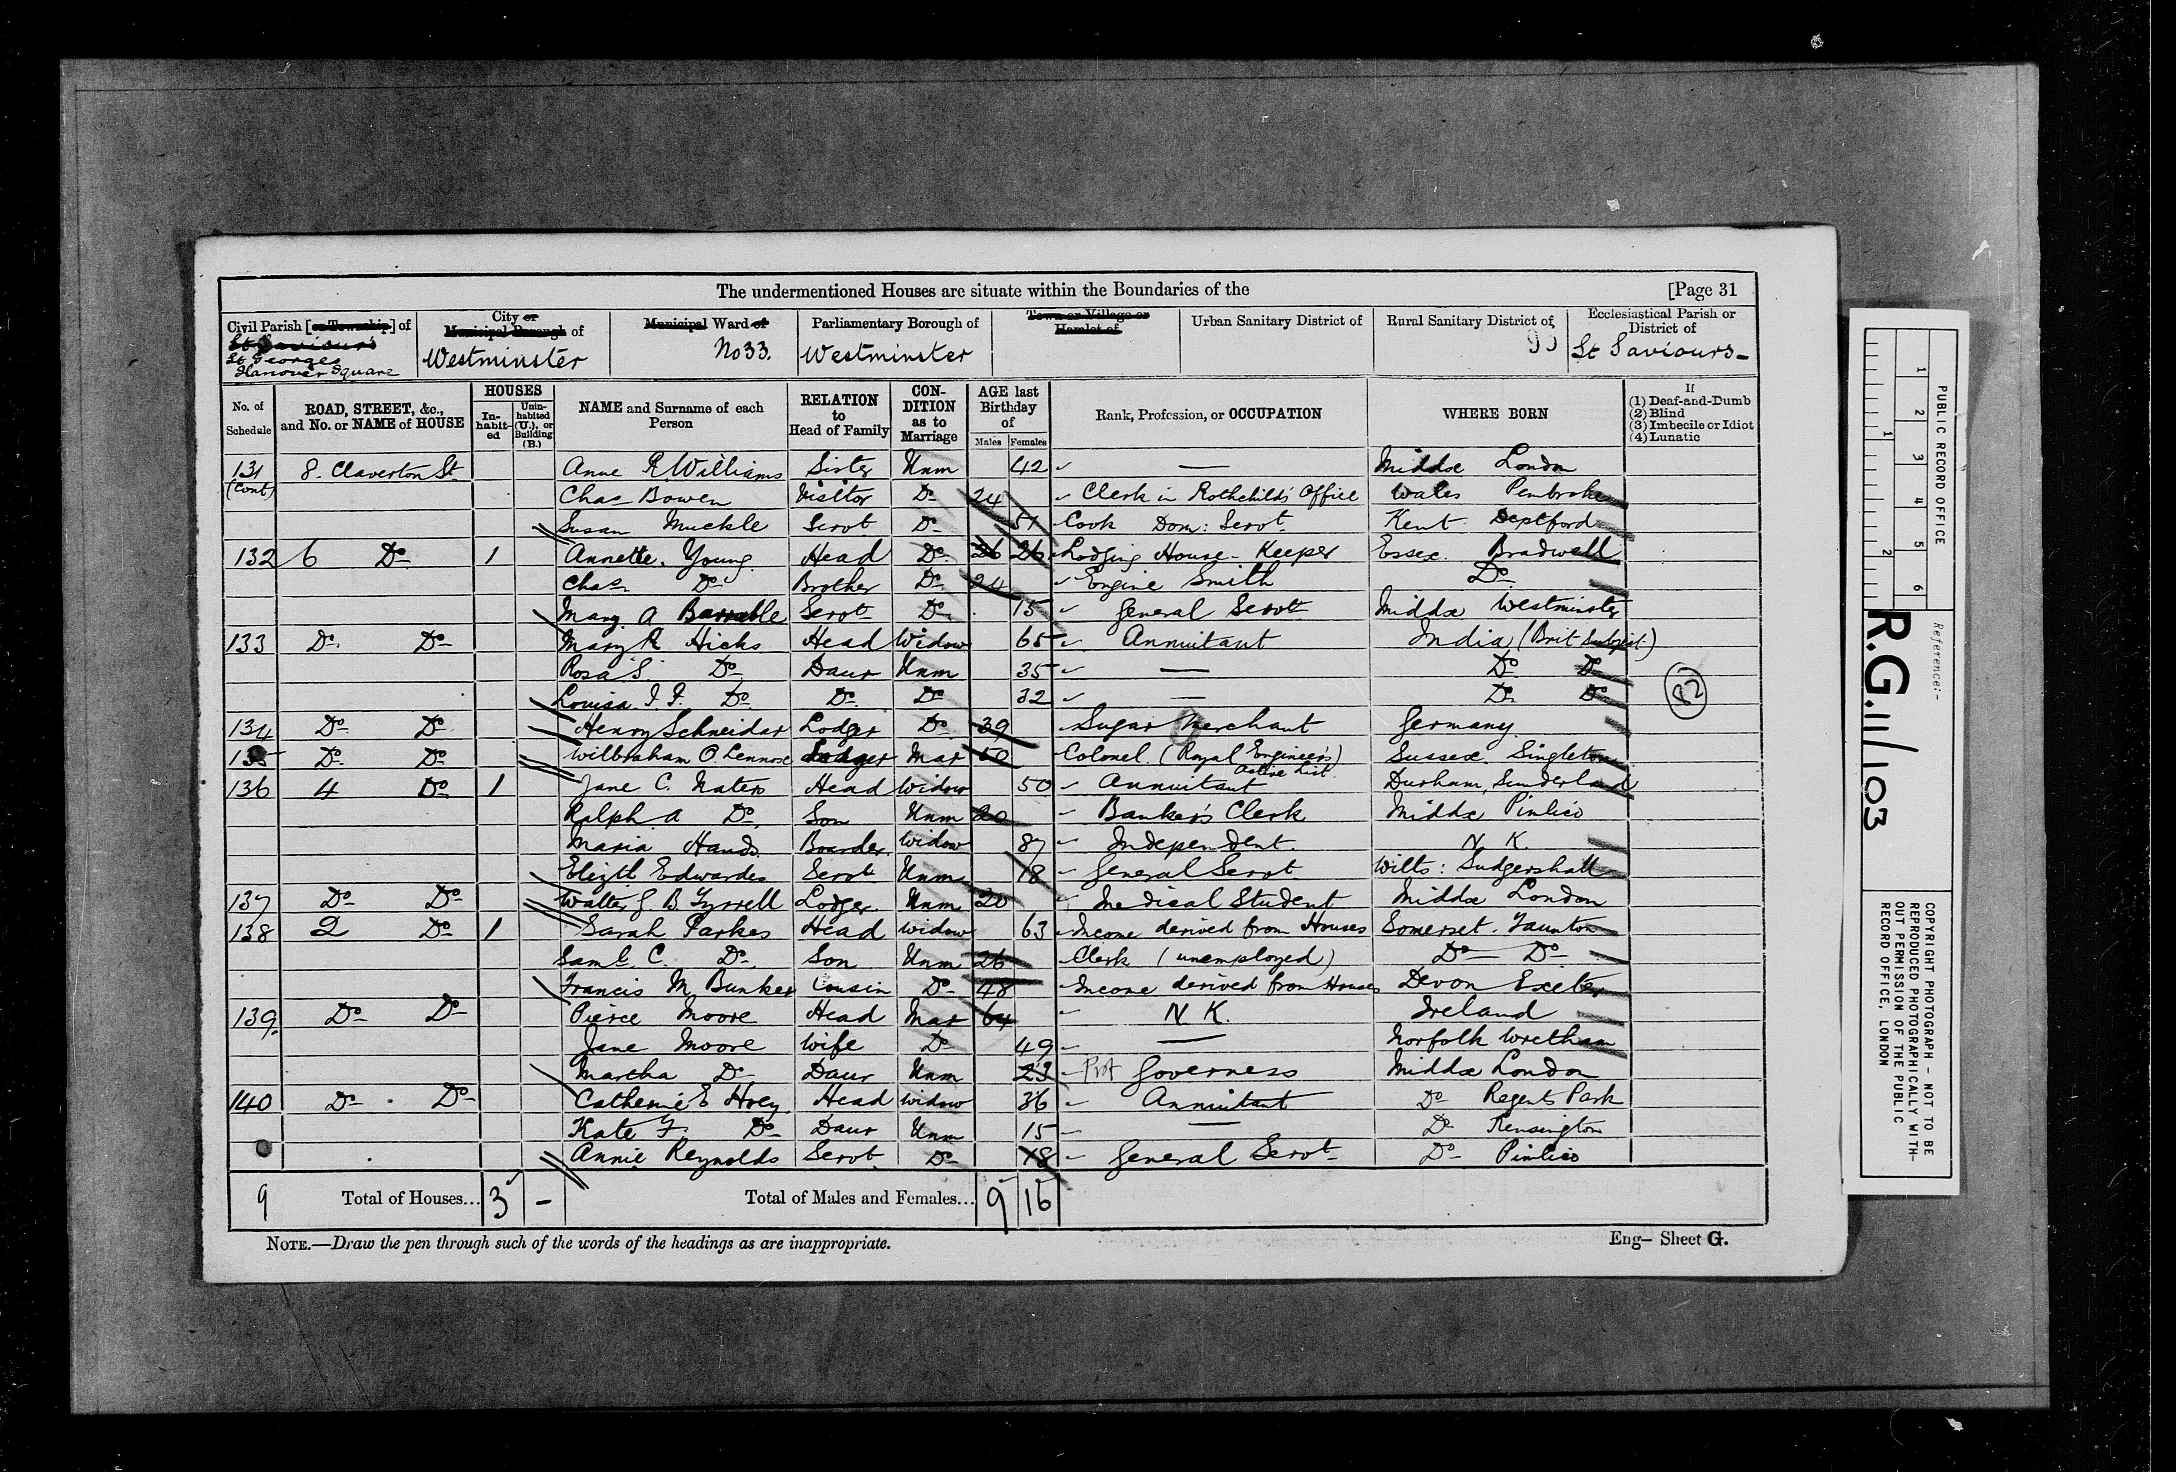 The undermentioned Houses are situate within the Boundaries of the [Page 31
Civil Parish [or Township] of St Saviours St Georges Hanover Square
City or Municipal Borough of Westminster
Municipal Ward of No 33.
Parliamentary Borough of Westminster
Town or Village or Hamlet of
Urban Sanitary District of
Rural Sanitary District of
Ecclesiastical Parish or District of St Saviours
No. of Schedule
ROAD, STREET, &c., and No. or NAME of HOUSE
HOUSES
In-habit-ed
Unin-habited (U.), or Building (B.)
NAME and Surname of each Person
RELATION to Head of Family
CON-DITION as to Marriage
AGE last Birthday of
Males Females
Rank, Profession, or OCCUPATION
WHERE BORN
If (1) Deaf-and-Dumb (2) Blind (3) Imbecile or Idiot (4) Lunatic
131 (Cont) 8. Claverton St. Anne R Williams Sister Unm 42 — Middx London
Chas Bowen Visitor Do 24 Clerk in Rothchilds' Office Wales Pembroke
Susan Muckle Servt Do 51 Cook Dom: Servt Kent Deptford
132 6 Do 1 Annette Young Head Do 26 26 Lodging House-Keeper Essex. Bradwell
Chas Do Brother Do 24 Engine Smith Do
Mary A Barrable Servt Do 15 General Servt Middx Westminster
133 Do Do Mary R Hicks Head Widow 65 Annuitant India (Brit Subject)
Rosa S. Do Daur Unm 35 — Do Do
Louisa I. F. Do Do Do 32 — Do Do
134 Do Do Henry Schneidar Lodger Do 39 Sugar Merchant Germany
135 Do Do Wilbraham O. Lennox Lodger Mar 50 Colonel (Royal Engineers) Active List. Sussex. Singleton
136 4 Do 1 Jane C. Naters Head Widow 50 Annuitant Durham, Sunderland
Ralph A Do Son Unm 20 Banker's Clerk Middx Pimlico
Maria Hands Boarder Widow 87 Independent. N. K.
Elizth Edwardes Servt Unm 18 General Servt Wilts: Ludgershall
137 Do Do Walter G. B. Tyrrell Lodger Unm 20 Medical Student Middx London
138 2 Do 1 Sarah Parkes Head Widow 63 Income derived from Houses Somerset. Taunton
Saml. C. Do Son Unm 26 Clerk (unemployed) Do Do
Francis M Bunker Cousin Do 48 Income derived from Houses Devon Exeter
139 Do Do Pierce Moore Head Mar 64 N K. Ireland
Jane Moore Wife Do 49 — Norfolk Wretham
Martha Do Daur Unm 23 Governess Middx London
140 Do Do Catherine E Hoey Head Widow 36 Annuitant Do Regents Park
Kate F. Do Daur Unm 15 — Do Kensington
Annie Reynolds Servt Do 18 General Servt Do Pimlico
9 Total of Houses... 3 — Total of Males and Females... 9 16
NOTE.—Draw the pen through such of the words of the headings as are inappropriate.
Eng— Sheet G.
82
PUBLIC RECORD OFFICE
1 2 3 4 5 6
1 2
Reference:-
R.G. 11/103
COPYRIGHT PHOTOGRAPH - NOT TO BE
REPRODUCED PHOTOGRAPHICALLY WITH-
OUT PERMISSION OF THE PUBLIC
RECORD OFFICE, LONDON